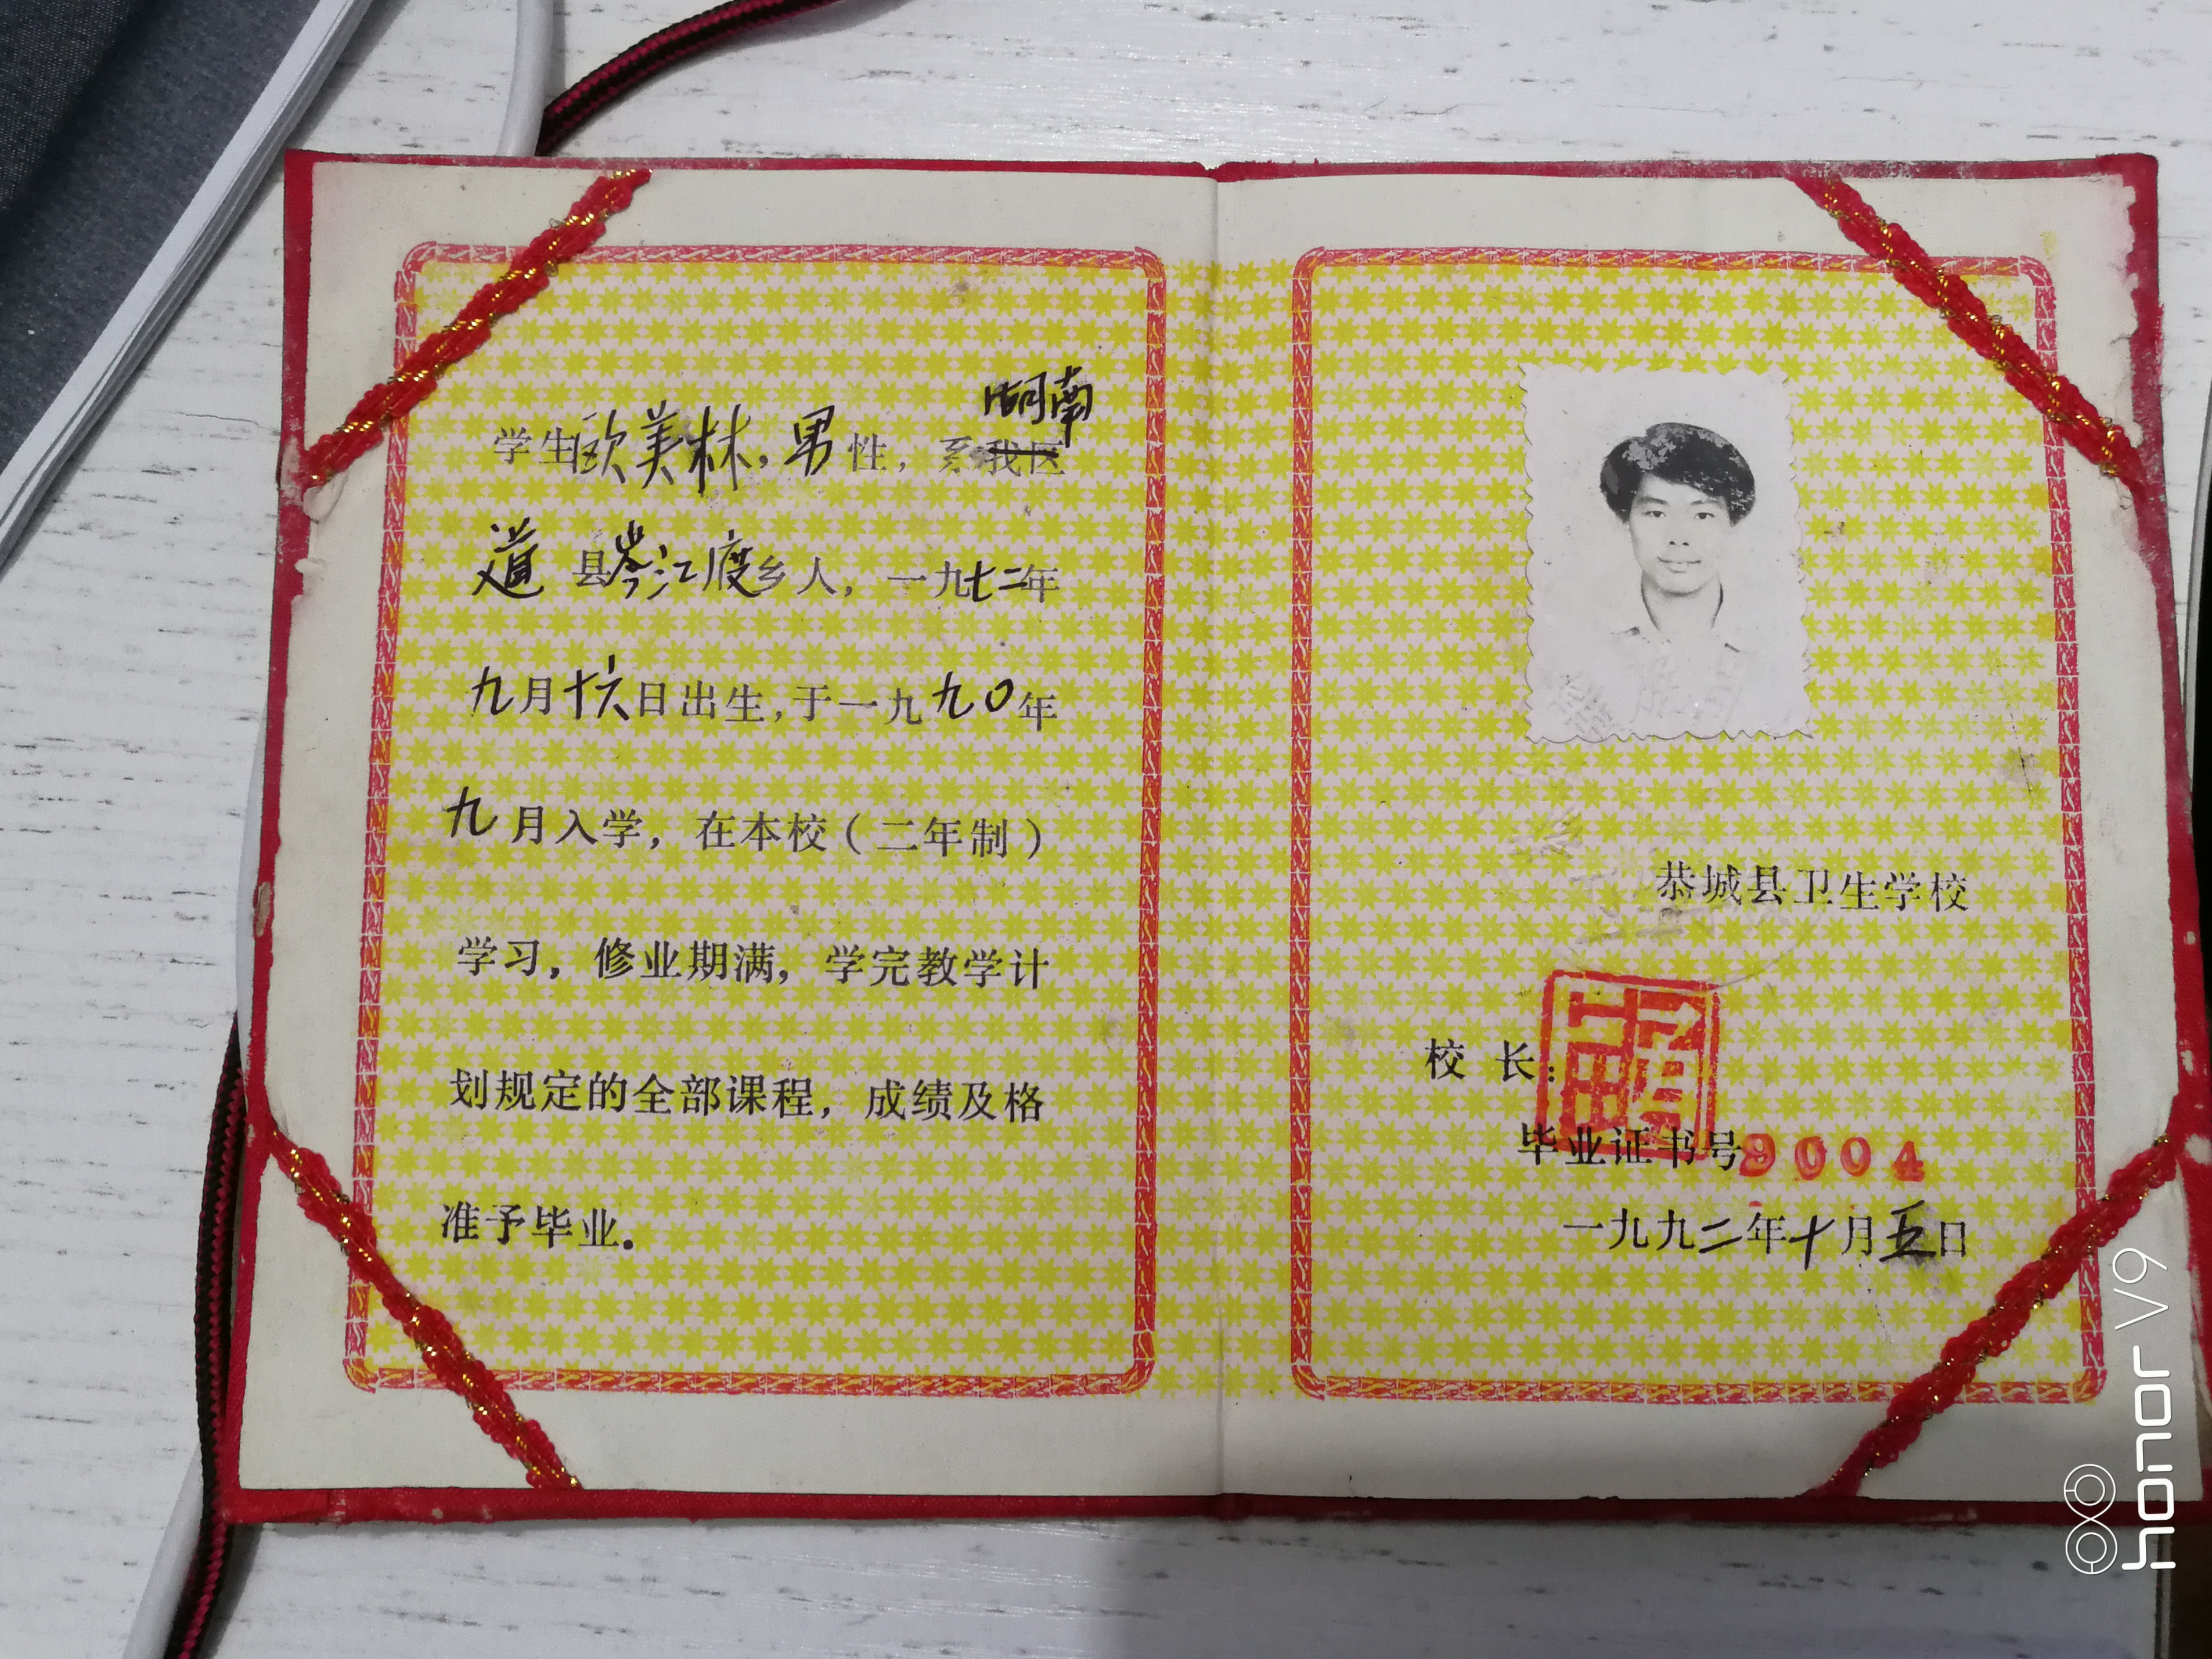 湖南
学生欧美林，男性，系我区
道县岑江度乡人，一九七二年
九月十六日出生，于一九九〇年
九月入学，在本校（二年制）
学习，修业期满，学完教学计
划规定的全部课程，成绩及格
准予毕业.
恭城县卫生学校
校 长：
毕业证书号9004
一九九二年十月五日
honor V9